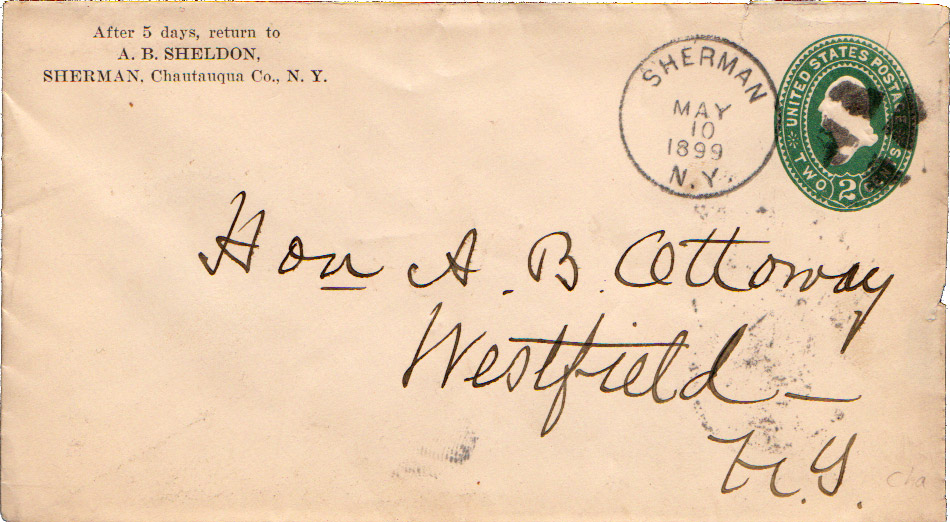 After 5 days, return to
A. B. SHELDON,
SHERMAN, Chautauqua Co., N. Y.
SHERMAN
MAY
10
1899
N.Y.
UNITED STATES POSTAGE
TWO 2 CENTS
Hon A. B. Ottoway
Westfield –
N.Y.
Cha